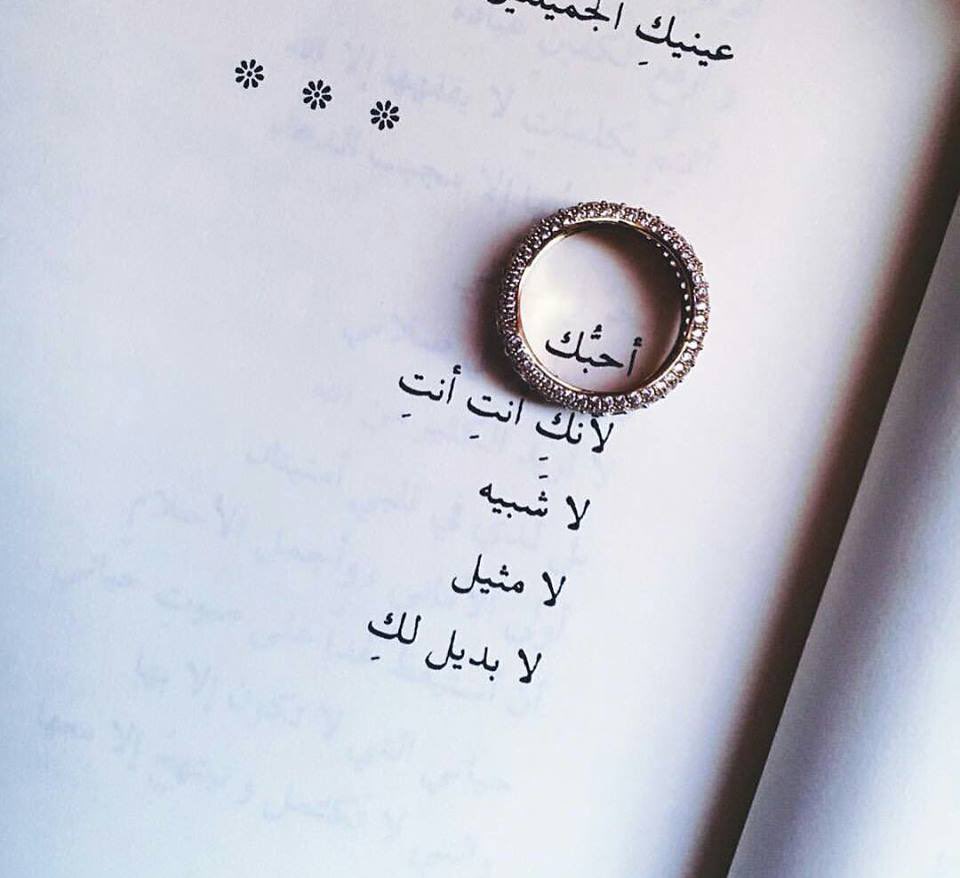 عينيكِ الجميلتين
أحبُّك
لأنكِ أنتِ أنتِ
لا شَبِيه
لا مثيل
لا بديل لكِ